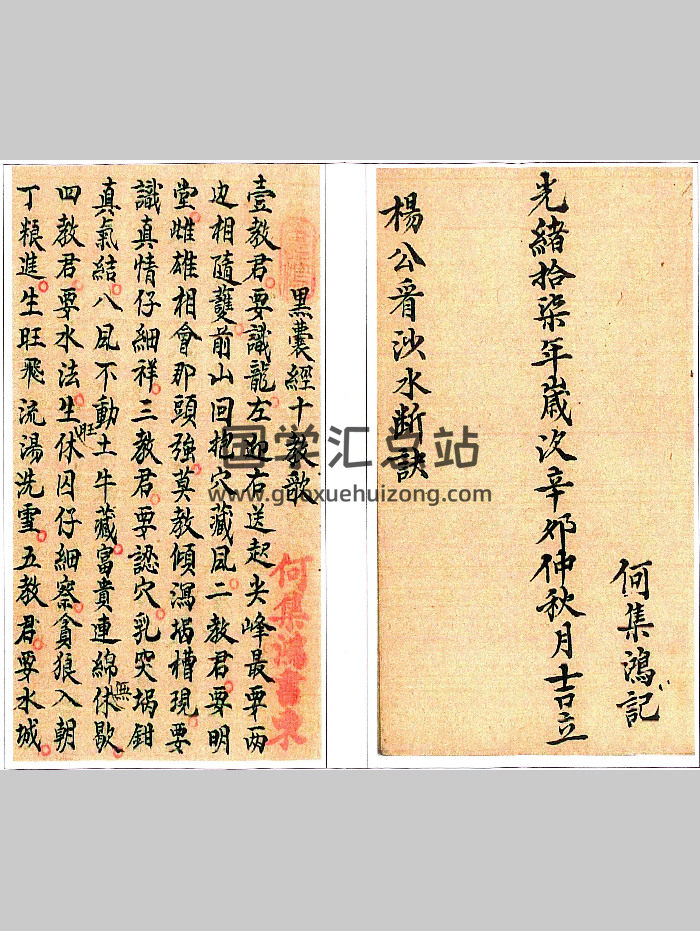 何集鴻記
光緒拾柒年歲次辛邜仲秋月吉立
楊公看沙水断訣
黑囊經十教歌
壹教君要識龍左迎右送起尖峰最要两
边相隨護前山回抱穴藏風二教君要明
堂雌雄相會那頭強莫教傾瀉堝槽現要
識真情仔細祥三教君要認穴乳突堝鉗
真氣結八風不動土牛藏富貴連綿無休歇
四教君要水法生旺休囚仔細察貪狼入朝
丁粮進生旺飛流湯洗雪五教君要水城
何集鴻書束
国学汇总站
www.guoxuehuizong.com